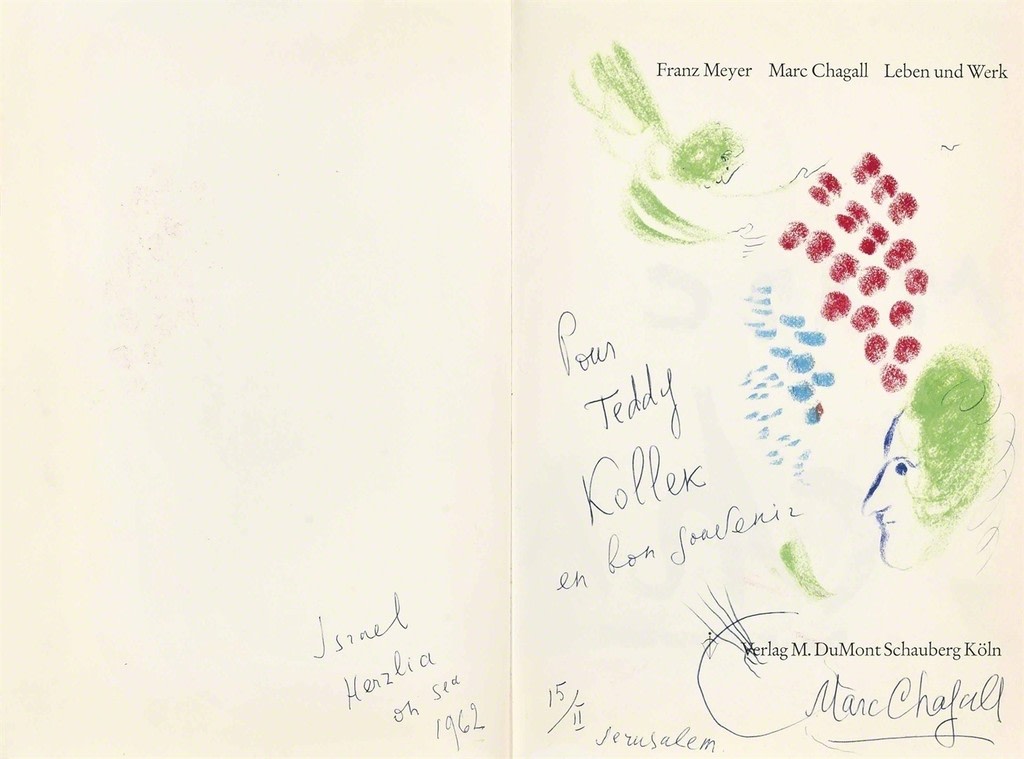 Israel
Herzlia
on sea
1962
Franz Meyer Marc Chagall Leben und Werk
Pour
Teddy
Kollek
en bon souvenir
Verlag M. DuMont Schauberg Köln
Marc Chagall
15/II
Jerusalem